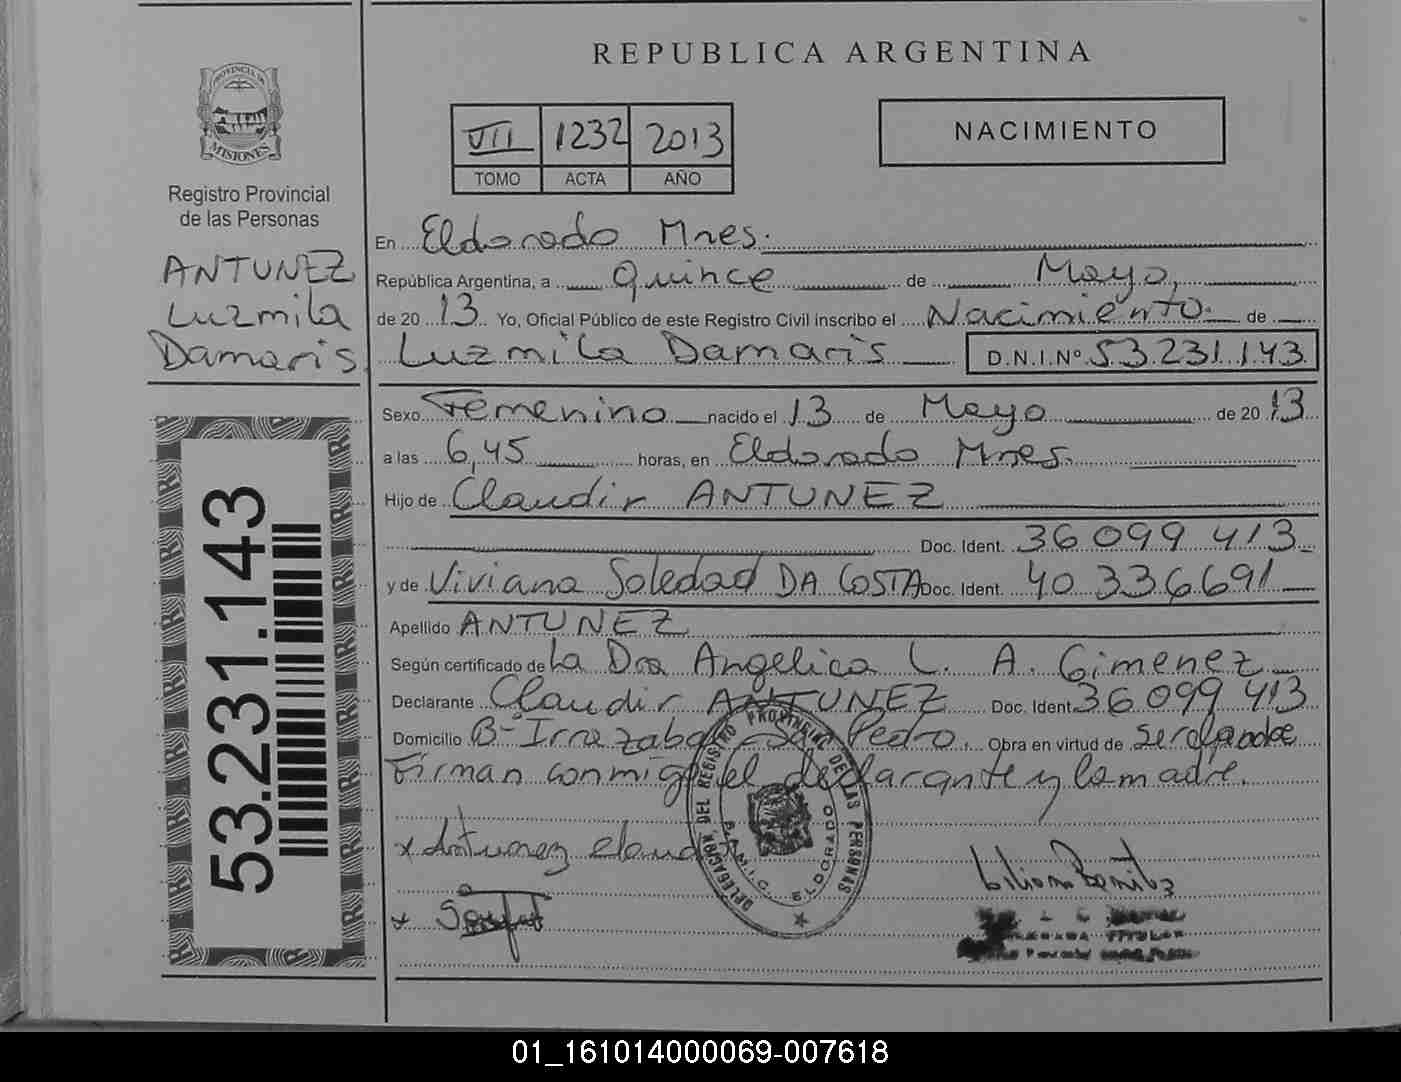 REPUBLICA ARGENTINA
PROVINCIA DE
MISIONES
Registro Provincial
de las Personas
ANTUNEZ
Luzmila
Damaris
53.231.143
VII 1232 2013
TOMO ACTA AÑO
NACIMIENTO
En Eldorado Mnes.
República Argentina, a Quince de Mayo,
de 20 13 Yo, Oficial Público de este Registro Civil inscribo el Nacimiento. de
Luzmila Damaris D.N.I.Nº 53.231.143
Sexo Femenino nacido el 13 de Mayo de 20 13
a las 6,45 horas, en Eldorado Mnes.
Hijo de Claudir ANTUNEZ
Doc. Ident. 36 099 413
y de Viviana Soledad DA COSTA Doc. Ident. 40 336 691
Apellido ANTUNEZ
Según certificado de La Dra Angelica L. A. Gimenez
Declarante Claudir ANTUNEZ Doc. Ident. 36 099 413
Domicilio Bº Irrazabal - San Pedro. Obra en virtud de ser el padre
Firman conmigo el declarante y la madre.
x Antunez Claudir
x
Liliana Benitez
DELEGACION DEL REGISTRO PROVINCIAL DE LAS PERSONAS
ELDORADO
TITULAR
01_161014000069-007618